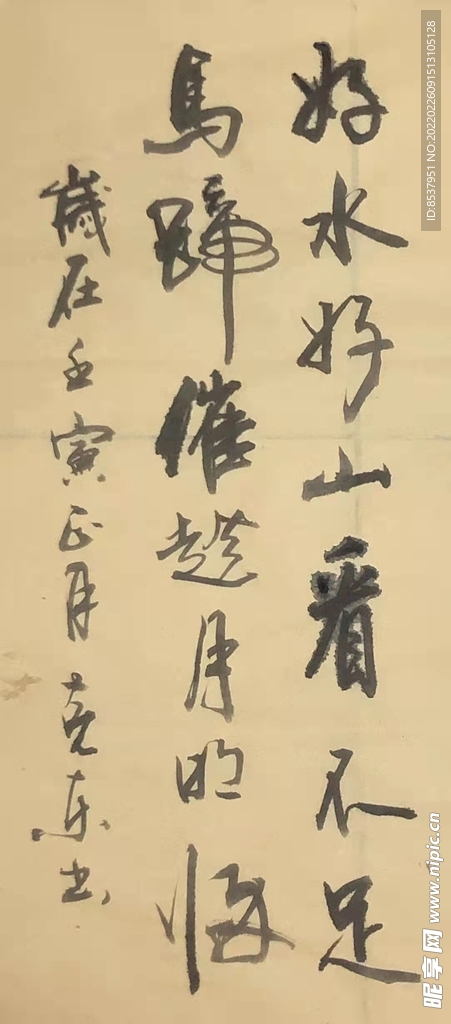 好水好山看不足
馬蹄催趁月明归
歲在壬寅正月克东书
ID:8537951 NO:20220226091513105128
昵享网 www.nipic.cn